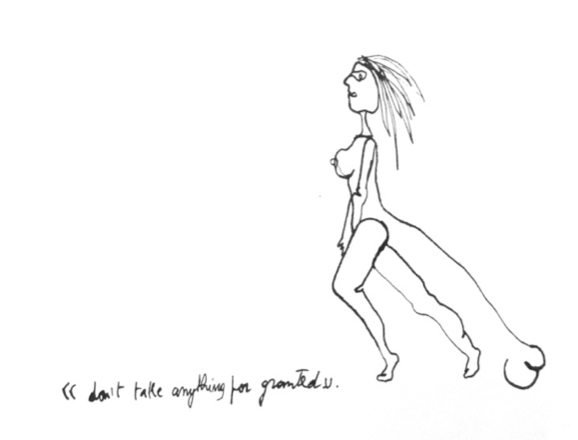 « don't take anything for granted ».